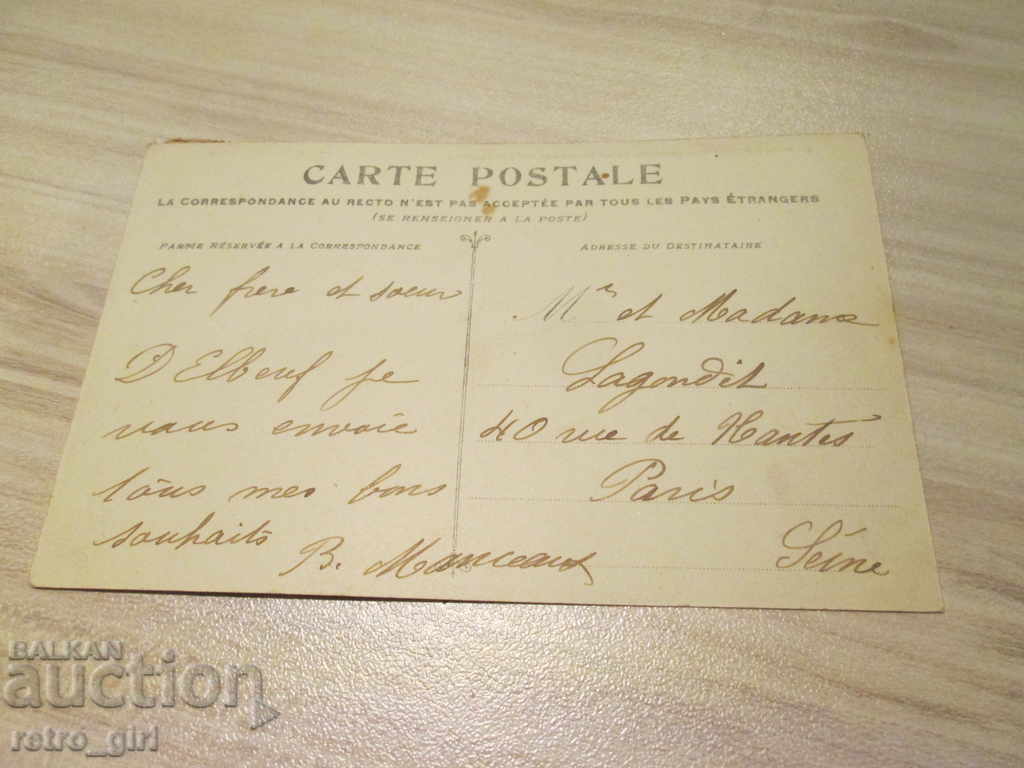 CARTE POSTALE
LA CORRESPONDANCE AU RECTO N'EST PAS ACCEPTÉE PAR TOUS LES PAYS ÉTRANGERS
(SE RENSEIGNER A LA POSTE)
PARTIE RÉSERVÉE A LA CORRESPONDANCE
Cher frere et soeur
D Elbeuf je
vous envoie
tous mes bons
souhaits
B. Manceaux
ADRESSE DU DESTINATAIRE
Mr et Madame
Lagondit
40 rue de Nantes
Paris
Séine
BALKAN
auction
retro_girl